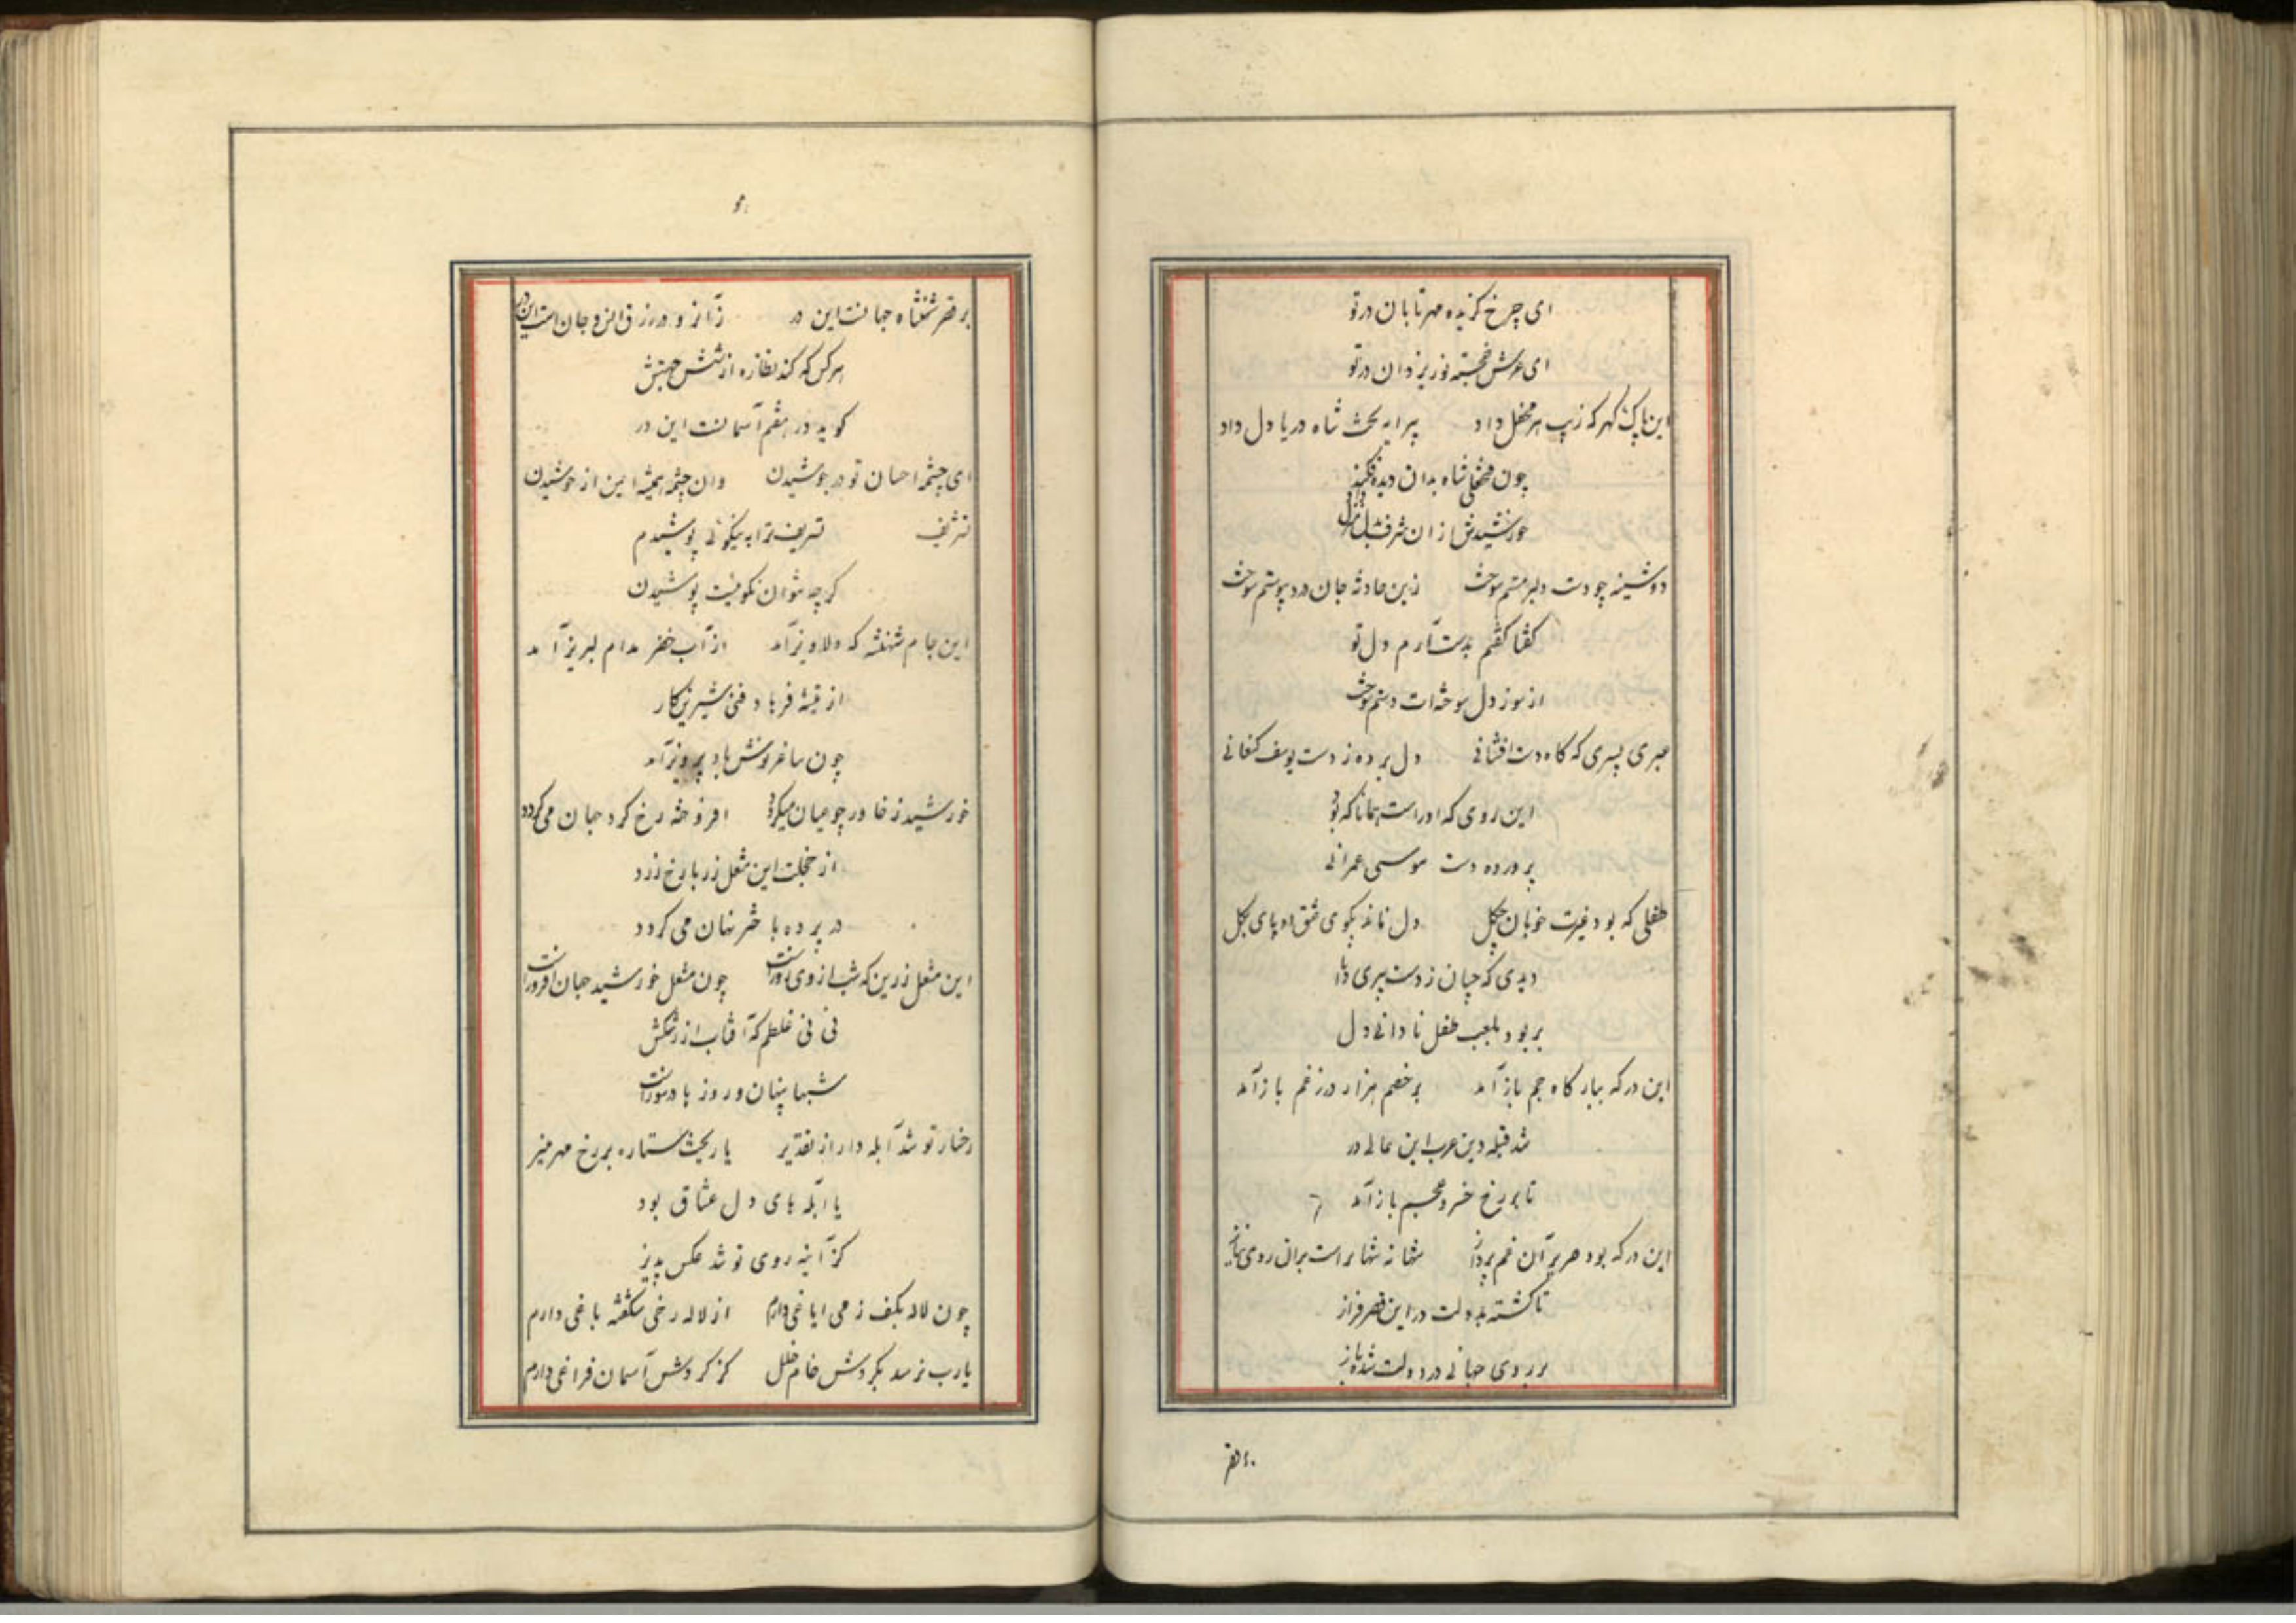 ای چرخ گزیده مهر تابان در تو
ای عرش خجسته نور یزدان در تو
این پاک گهر که زیب هر محفل داد پیرایه بخت شاه دریا دل داد
چون شاه بدان دیده فکند
خورشیدش از آن شرف منزل
دوشینه چو دست دلبر مستم سوخت زین حادثه جان در د پوستم سوخت
گفتا گفتم بدست آرم دل تو
از سوز دل سوخته‌ات دستم سوخت
عبری پسری که گاه دست افشانی دل برده ز دست یوسف کنعانی
این روی که او راست همانا که بود
پرورده دست موسی عمرانی
طفلی که بود غیرت خوبان چگل دل مانده بکوی عشق او پای بگل
دیدی که چسان ز دست پیری دانا
بربود بلعب طفل نادانی دل
این در که ببارگاه جم باز آمد بر خصم هزار در ز غم باز آمد
شد قبله دین عرب این عالی در
تا بر رخ خسرو عجم باز آمد
این در که بود صریر آن غم پرداز شاهانه شهان راست بر آن روی نیاز
تا گشته بدولت در این قصر فراز
بر روی جهانی در دولت شده باز
بر قصر
بر قصر شهنشاه جهانست این در زانرو در رزق انس و جان است این در
هر کس که کند نظاره از شش جهتش
گوید در هفتم آسمانست این در
ای چشمه احسان تو در جوشیدن وان چشمه همیشه ایمن از خوشیدن
تشریف تشریف ترا به نیکوئی پوشیدم
گر چه نتوان نکوئیت پوشیدن
این جام شهنشه که دلاویز آمد از آب خضر مدام لبریز آمد
از تیشه فرهاد فنی شیرین کار
چون ساغر نوشابه پرویز آمد
خورشید ز خاور چو عیان میگردد افروخته رخ گرد جهان می گردد
از خجلت این مشعل زر با رخ زرد
در پرده باختر نهان می گردد
این مشعل زرین که شب از وی روز است چون مشعل خورشید جهان افروز است
نی نی غلطم که آفتاب از رشکش
شبها پنهان و روزها در سوز است
رخسار تو شد آبله دار از تقدیر یا ریخت ستاره بر رخ مهر منیر
یا آبله های دل عشاق بود
کز آینه روی تو شد عکس پذیر
چون لاله بکف ز می ایاغی دارم از لاله رخی شکفته باغی دارم
یارب نرسد بگردش جام خلل کز گردش آسمان فراغی دارم